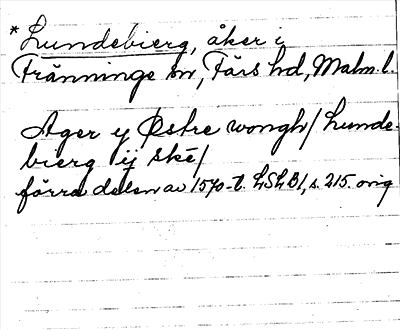 *Lundebierg, åker i
Tränninge sn, Färs hd, Malm. l.
Ager y Østre wongh/ Lunde-
bierg ij skē/
förra delen av 1570-t. LSLB1, s. 215. orig